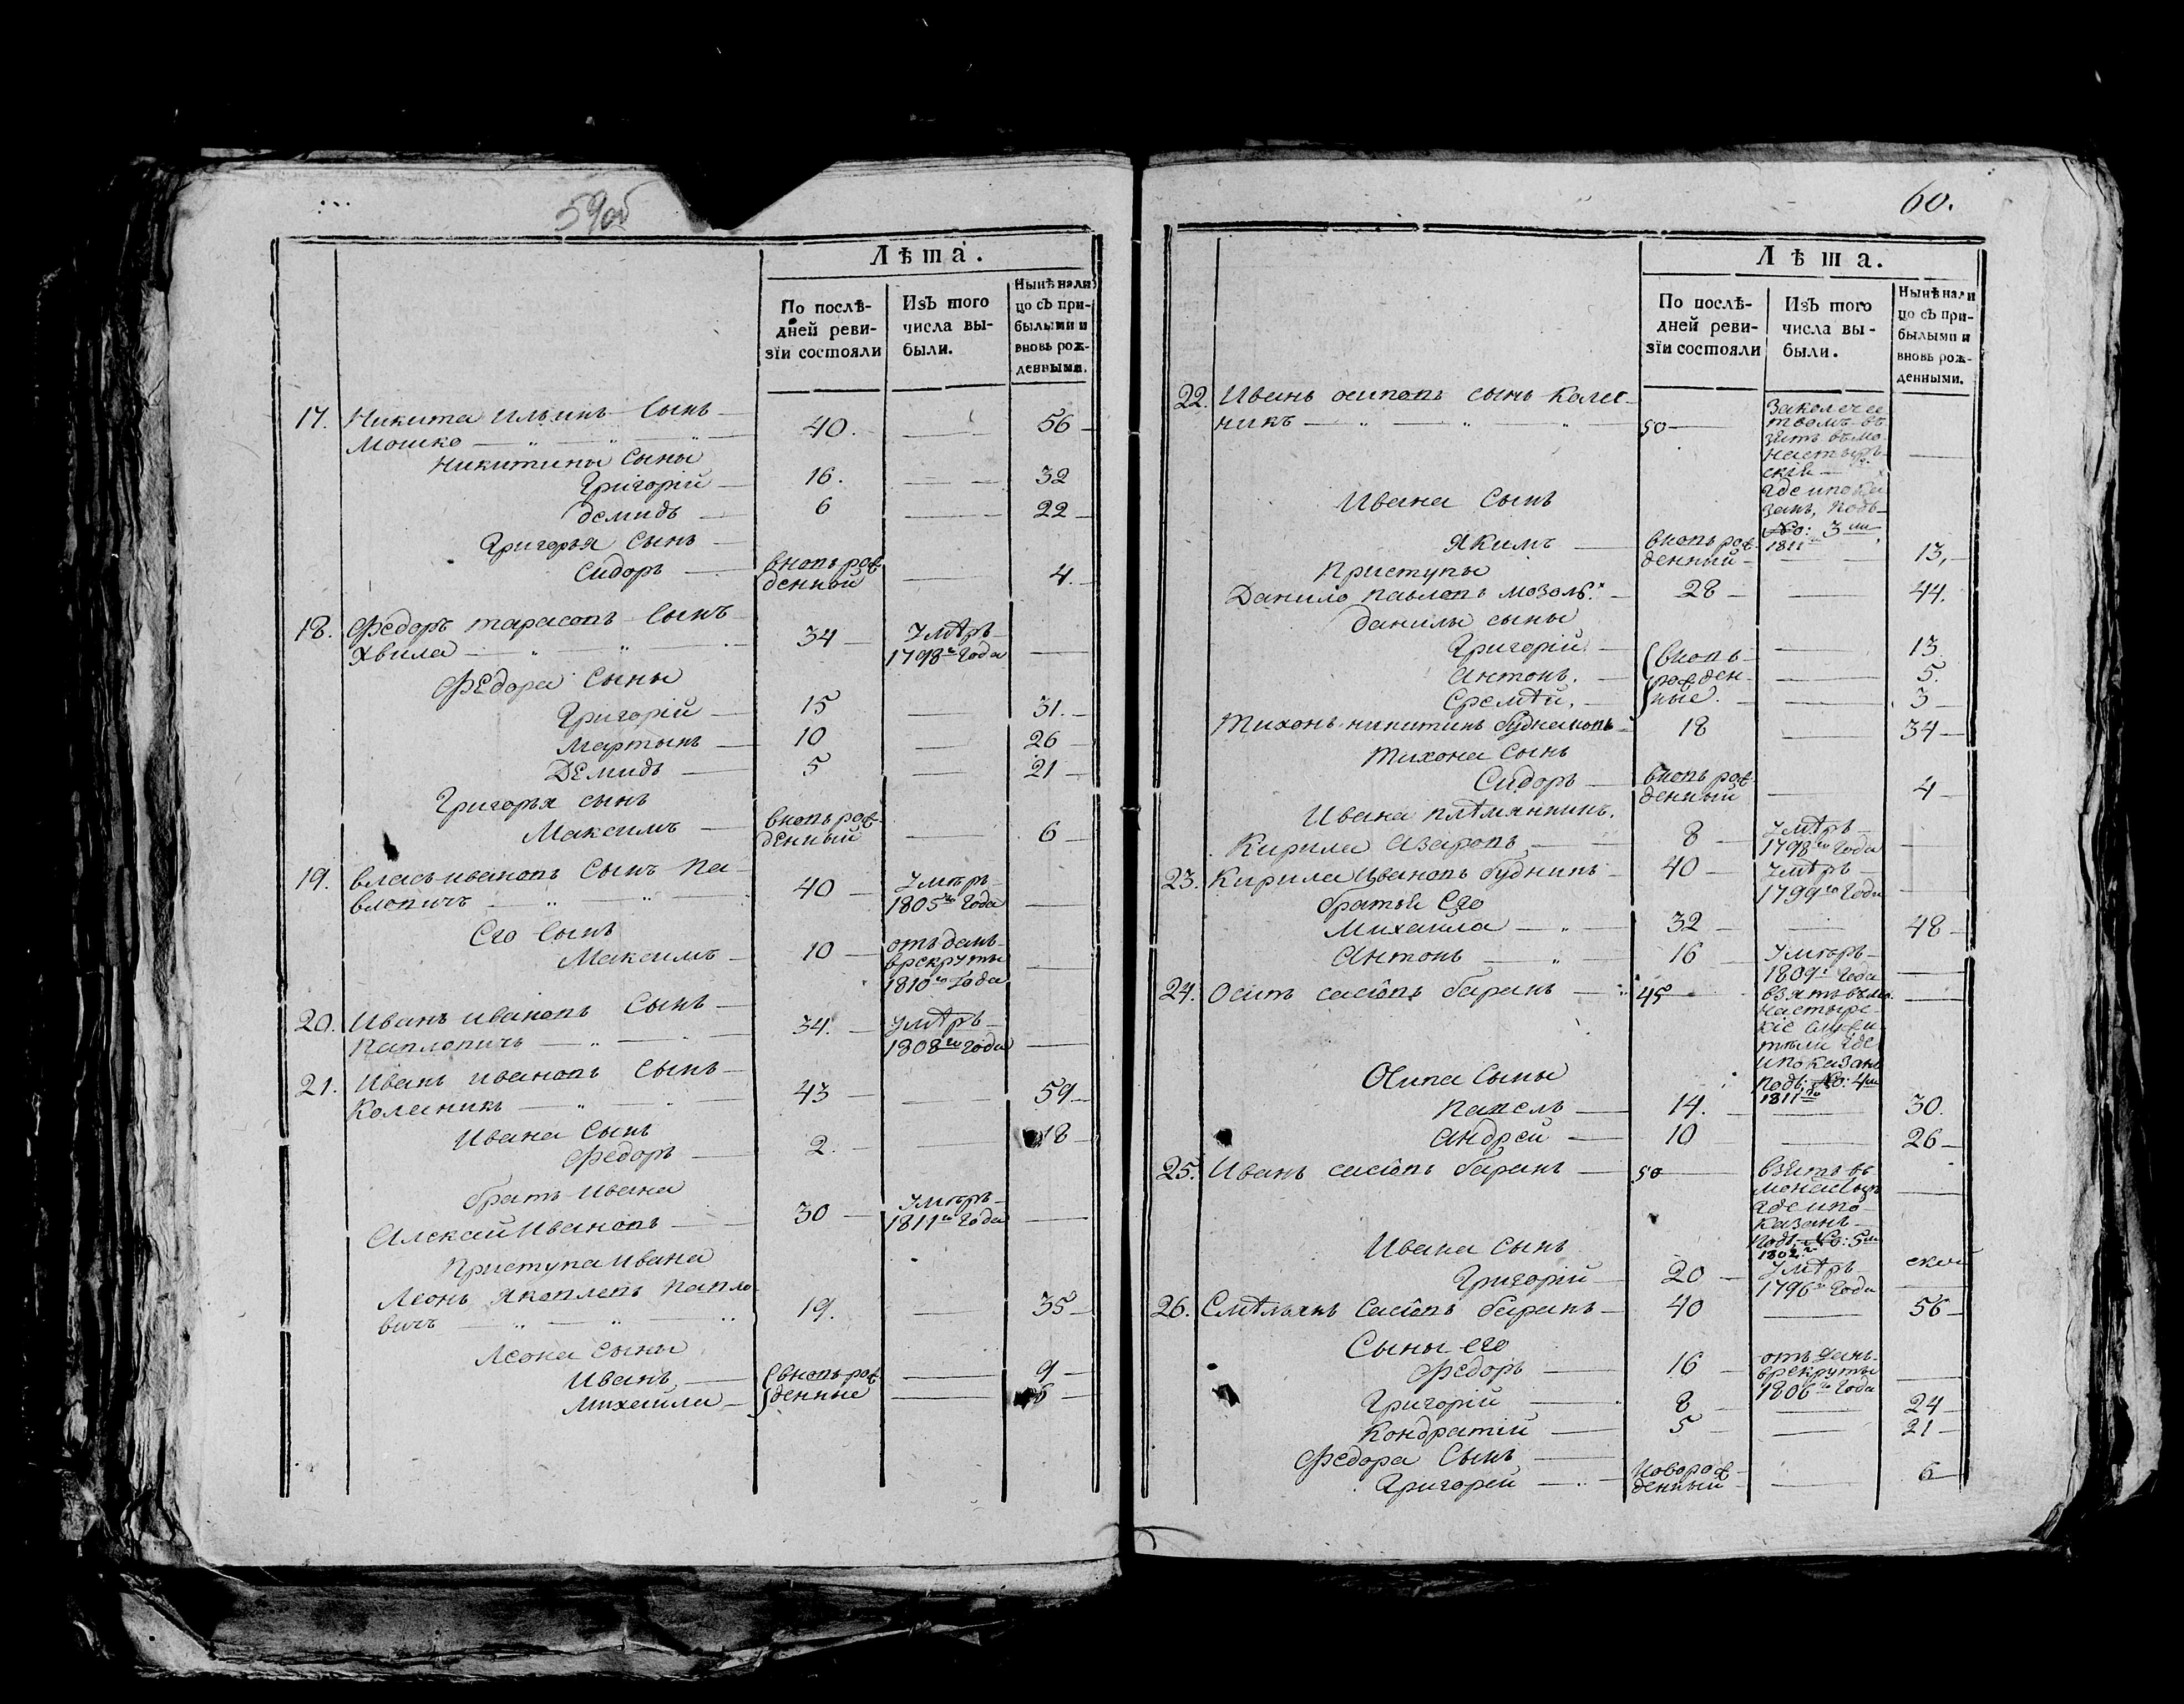 59об
Лѣта.
По послѣ-
дней реви-
зїи состояли
Изъ того
числа вы-
были.
Нынѣ нали
цо съ при-
былыми и
вновь рож-
денными.
17. Никита ильинъ Сынъ
Мошко 40. 56
Никитины Сыны
Григорій 16. 32
демидъ 6 22
Григорья Сынъ
Сидоръ вновь рож
денной 4.
18. Федоръ тарасовъ Сынъ
Хвила 34 Умѣръ
1798го Года
Федора Сыны
Григорій 15 31.
Мартынъ 10 26
Демидъ 5 21
Григорья сынъ
Максимъ вновь рож
денный 6
19. власъ ивановъ Сынъ Па-
вловичъ 40 Умѣръ
1805го Года
Его Сынъ
Максимъ 10 отъданъ
врекруты
1810го Года
20. Иванъ ивановъ Сынъ
Павловичъ 34. умѣръ
1808го года
21. Иванъ ивановъ Сынъ
Колесникъ 43 59
Ивана Сынъ
Федоръ 2. 18
братъ Ивана
Алексай Ивановъ 30 Умѣръ
1811го Года
Приступа Ивана
Леонъ Яковлевъ Павло
вичъ 19. 35
Леона Сыны
Иванъ вновь рож 9
Михайла денные 6
60.
Лѣта.
По послѣ-
дней реви-
зїи состояли
Изъ того
числа вы-
были.
Нынѣ нали
цо съ при-
былыми и
вновь рож-
денными.
22. Иванъ осиповъ сынъ Колес-
никъ 50 Заколечес
твомъ въ
зятъ въмо
настыр
скіе
Гдеипока
занъ, подъ
No: 3мъ
1811
Ивана Сынъ
Якимъ вновь рож
денный 13,
Приступы
Данило павловъ мозоль. 28 44.
данилы сыны
Григорій 13
Антонъ. вновь 5.
Еремѣй. рожден
ные. 3
Тихонъ никитинъ будкановъ 18 34
Тихона Сынъ
Сидоръ вновь рож
денный 4
Ивана плѣмянникъ.
Кирила Азаровъ 8 Умѣръ
1798го Года
23. Кирила Ивановъ будникъ 40 Умѣръ
1799го Года
братья Его
Михайла 32 48
Антонъ 16 Умѣръ
1809го Года
24. Осипъ сасовъ баранъ 45 взятъ въмо
настырс
кіе служи
тели Где
ипоказанъ
подъ No: 4мъ
1811го
Осипа Сыны
Павелъ 14. 30.
Андрей 10 26
25. Иванъ сасовъ баранъ 50 взятъ въ
монастыр
Гдеипо
казанъ
подъ No: 5мъ
1802го
Ивана Сынъ
Григорій 20 Умѣръ
1796го Года
26. Емѣльянъ Сасовъ баранъ 40 56
Сыны его
Федоръ 16 отъданъ
врекруты
1806го Года
Григорій 8 24
Кондратій 5 21
Федора Сынъ
Григорей новорож
денный 6